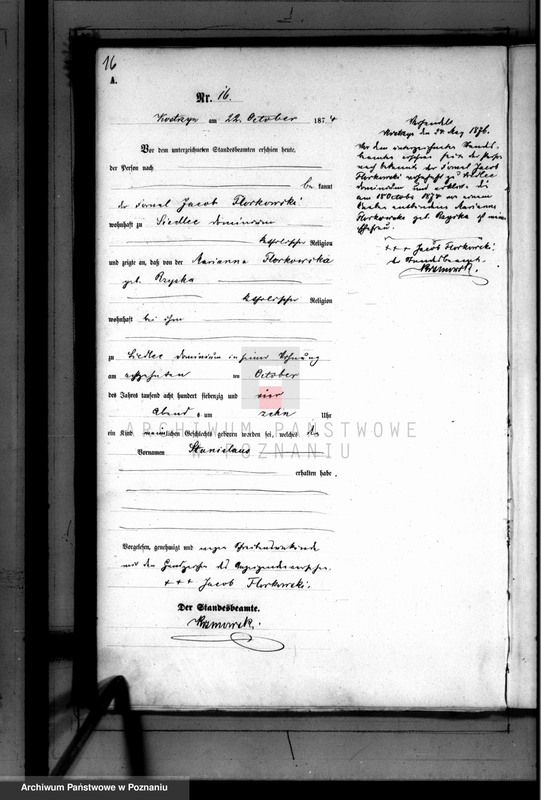 16
A.
Nr. 16.
Kostrzyn am 22. October 1874
Vor dem unterzeichneten Standesbeamten erschien heute,
der Person nach
be kannt
der Fornal Jacob Florkowski
wohnhaft zu Siedlec Dominium
katholischer Religion
und zeigte an, daß von der Marianna Florkowska
geb. Rzyska
katholischer Religion
wohnhaft bei ihm
zu Siedlec Dominium in seiner Wohnung
am achtzehnten ten October
des Jahres tausend acht hundert siebenzig und vier
Abends um zehn Uhr
ein Kind männlichen Geschlechts geboren worden sei, welches den
Vornamen Stanislaus
erhalten habe.
Vorgelesen, genehmigt und wegen Schreibensunkunde
mit den Handzeichen des Anzeigenden versehen
+++ Jacob Florkowski.
Der Standesbeamte.
den 24. Aug 1876.
Vor dem unterzeichneten Standes-
beamten erschien heute der Person
nach bekannt der Fornal Jacob
Florkowski wohnhaft zu Siedlec
Dominium und erklärt, die
am 18 October 1874
Marianna
Florkowska geb. Rzyska
Ehefrau.
+++ Jacob Florkowski.
der Standesbeamte.
ARCHIWUM PAŃSTWOWE
W POZNANIU
Archiwum Państwowe w Poznaniu